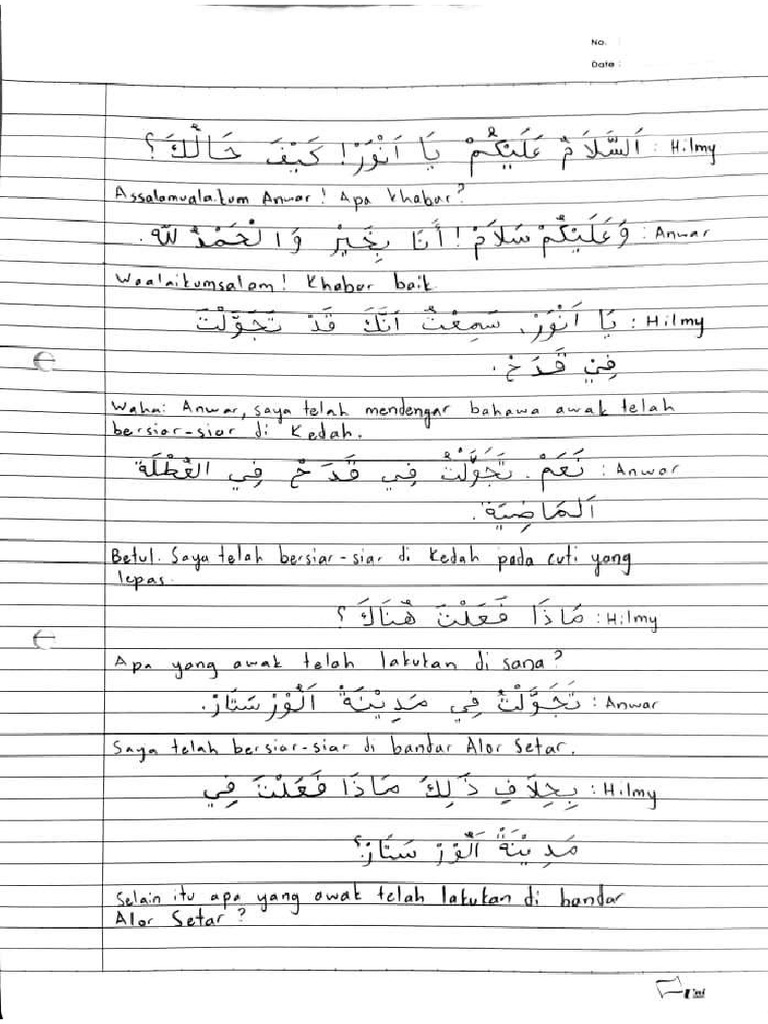 No.
Date :
اَلسَّلَامُ عَلَيْكُمْ يَا اَنْوَرْ! كَيْفَ حَالُكَ؟ : Hilmy
Assalamualaikum Anwar! Apa khabar?
وَعَلَيْكُمْ سَلَامْ! أَنَا بِخَيْرٍ وَالْحَمْدُ لله. : Anwar
Waalaikumsalam! Khabar baik.
يَا اَنْوَرْ، سَمِعْتُ اَنَّكَ قَدْ تَجَوَّلْتَ : Hilmy
فِيْ قَدَحْ.
Wahai Anwar, saya telah mendengar bahawa awak telah
bersiar-siar di Kedah.
نَعَمْ. تَجَوَّلْتُ فِي قَدَحْ فِي العُطْلَة : Anwar
اَلمَاضِيَة.
Betul. Saya telah bersiar-siar di Kedah pada cuti yang
lepas.
مَاذَا فَعَلْتَ هُنَاكَ؟ : Hilmy
Apa yang awak telah lakukan di sana?
تَجَوَّلْتُ فِي مَدِيْنَةْ اَلُوْرْ سَتَارْ. : Anwar
Saya telah bersiar-siar di bandar Alor Setar.
بِخِلَافِ ذَلِكَ مَاذَا فَعَلْتَ فِي : Hilmy
مَدِيْنَةْ اَلُوْرْ سَتَارْ؟
Selain itu apa yang awak telah lakukan di bandar
Alor Setar?